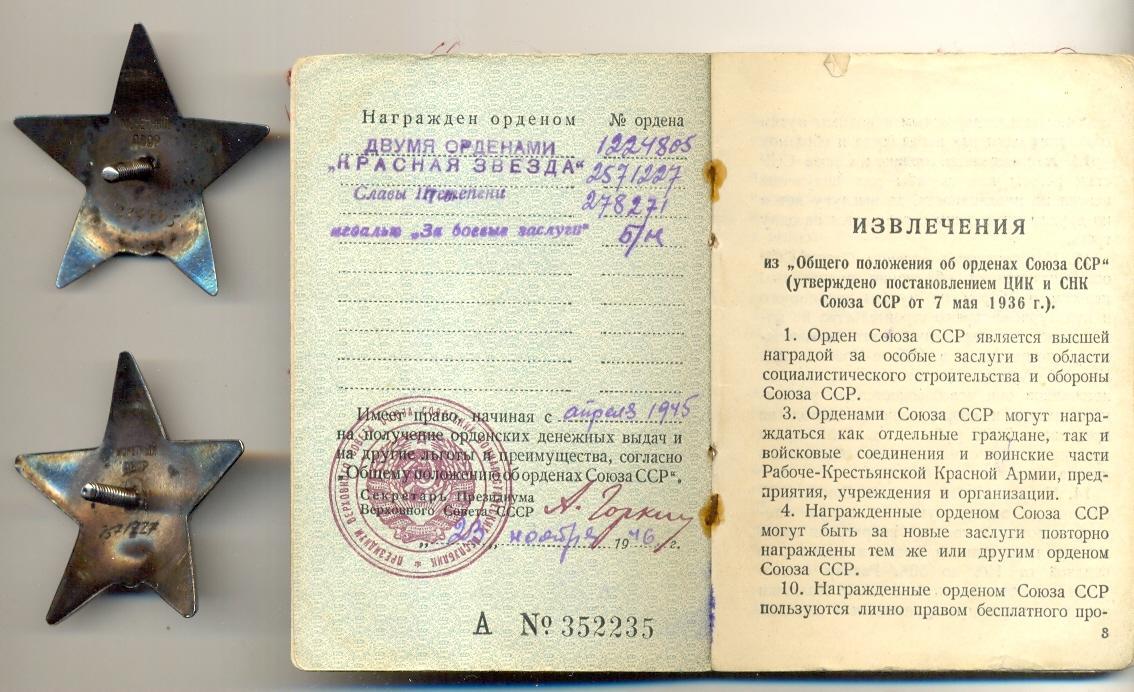 Награжден орденом № ордена
ДВУМЯ ОРДЕНАМИ 1224805
„КРАСНАЯ ЗВЕЗДА“ 2571227
Славы III степени 278271
медалью „За боевые заслуги“ б/н
Имеет право, начиная с апреля 1945
на получение орденских денежных выдач и
на другие льготы и преимущества, согласно
„Общему положению об орденах Союза ССР“.
Секретарь Президиума
Верховного Совета СССР А. Горкин
„23“ ноября 1946 г.
А № 352235
ИЗВЛЕЧЕНИЯ
из „Общего положения об орденах Союза ССР“
(утверждено постановлением ЦИК и СНК
Союза ССР от 7 мая 1936 г.).
1. Орден Союза ССР является высшей
наградой за особые заслуги в области
социалистического строительства и обороны
Союза ССР.
3. Орденами Союза ССР могут награ-
ждаться как отдельные граждане, так и
войсковые соединения и воинские части
Рабоче-Крестьянской Красной Армии, пред-
приятия, учреждения и организации.
4. Награжденные орденом Союза ССР
могут быть за новые заслуги повторно
награждены тем же или другим орденом
Союза ССР.
10. Награжденные орденом Союза ССР
пользуются лично правом бесплатного про-
3